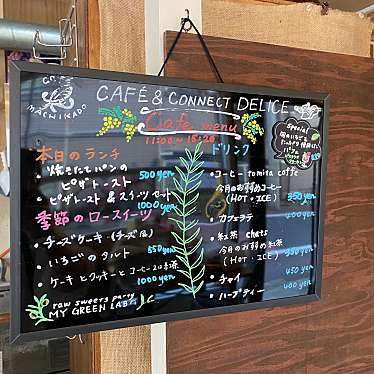 MACHIKADO
CAFÉ & CONNECT DELICE
Cafe menu
11:00~15:30
本日のランチ
・焼きたてパンの
ピザトースト 500yen
・ピザトースト & スイーツセット
1000yen
季節のロースイーツ
・チーズケーキ
550yen
・いちごのタルト
・ケーキとクッキーとコーヒーor お茶
1000yen
raw sweets party
MY GREEN LAB.
Special
ドリンク
・コーヒー tomita caffe
今月のお勧めコーヒー
(HOT・ICE) 350yen
・カフェラテ 400yen
・紅茶 chats
今月のお勧め紅茶
(HOT・ICE) 350yen
・チャイ 450yen
・ハーブティー 400yen